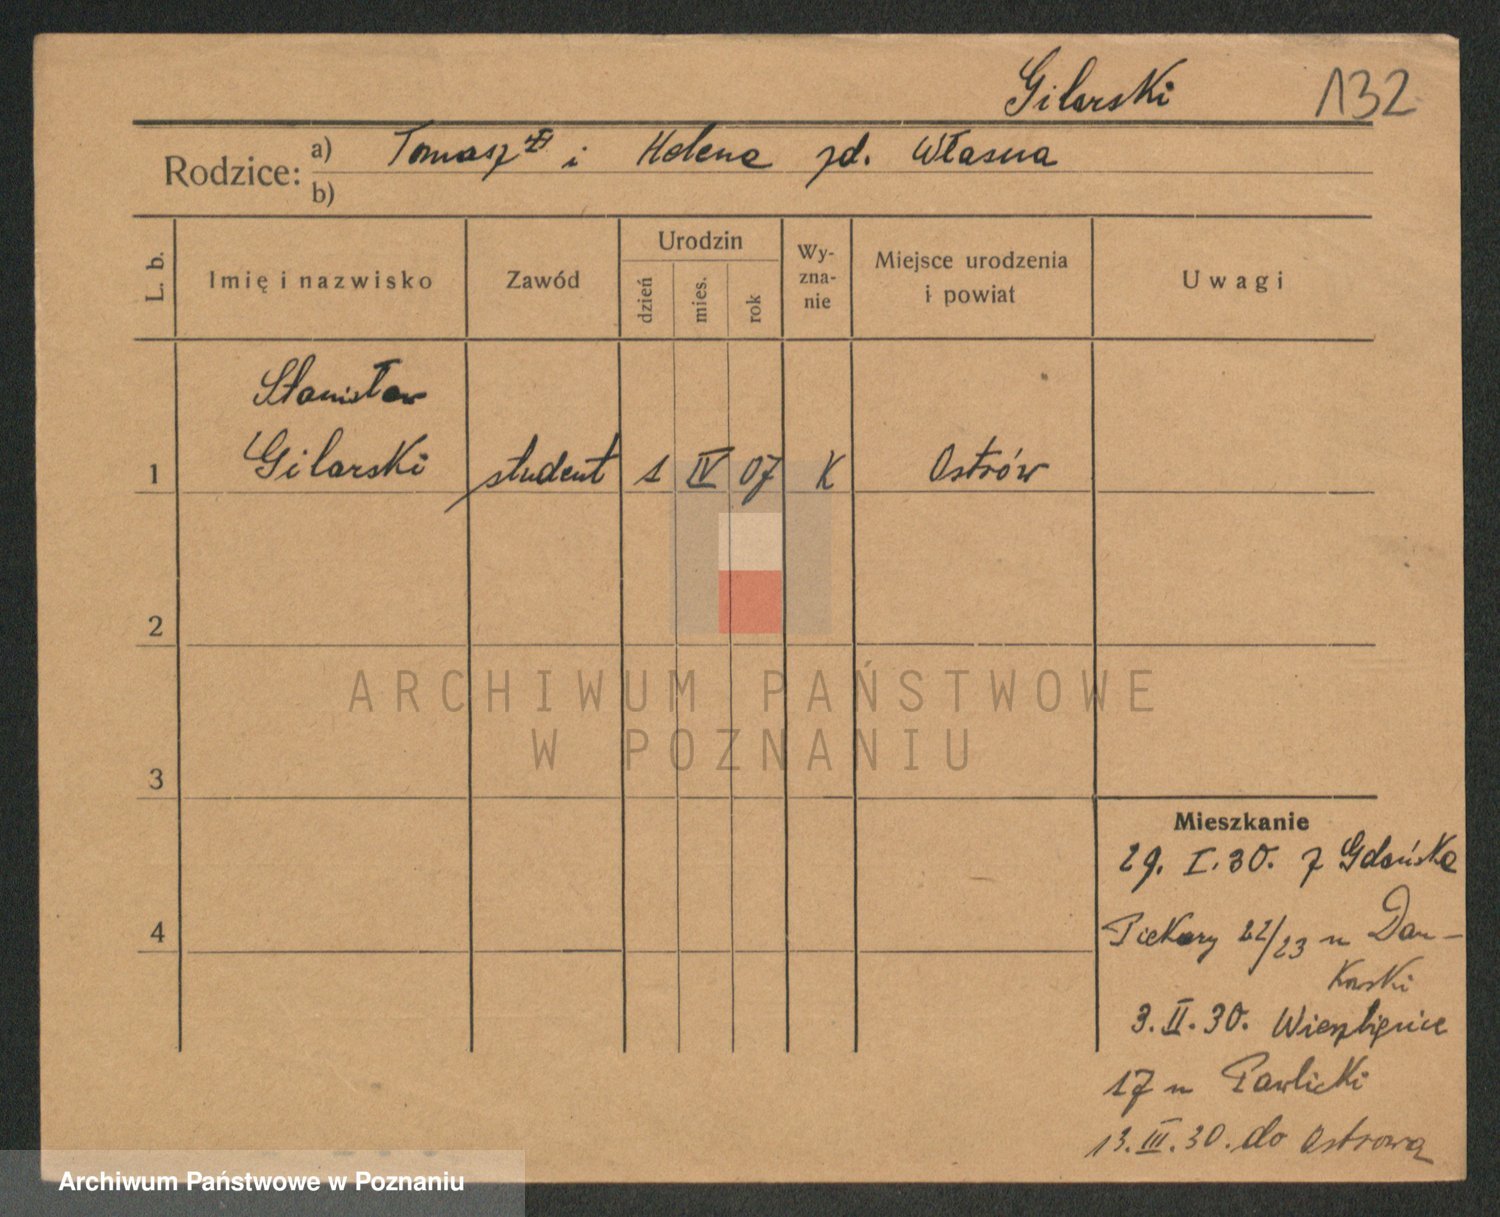 Gilarski 132
Rodzice: a) Tomasz i Helena zd. Własna
b)
L. b. Imię i nazwisko Zawód Urodzin dzień mies. rok Wy-zna-nie Miejsce urodzenia i powiat Uwagi
Stanisław
1 Gilarski student 1 IV 07 K Ostrów
2
ARCHIWUM PAŃSTWOWE
W POZNANIU
3
Mieszkanie
29. I. 30. z Gdańska
4
Piekary 22/23 u Dan-
kowski
3. II. 30. Wierzbięcice
17 u Pawlicki
13. III. 30. do Ostrowa
Archiwum Państwowe w Poznaniu